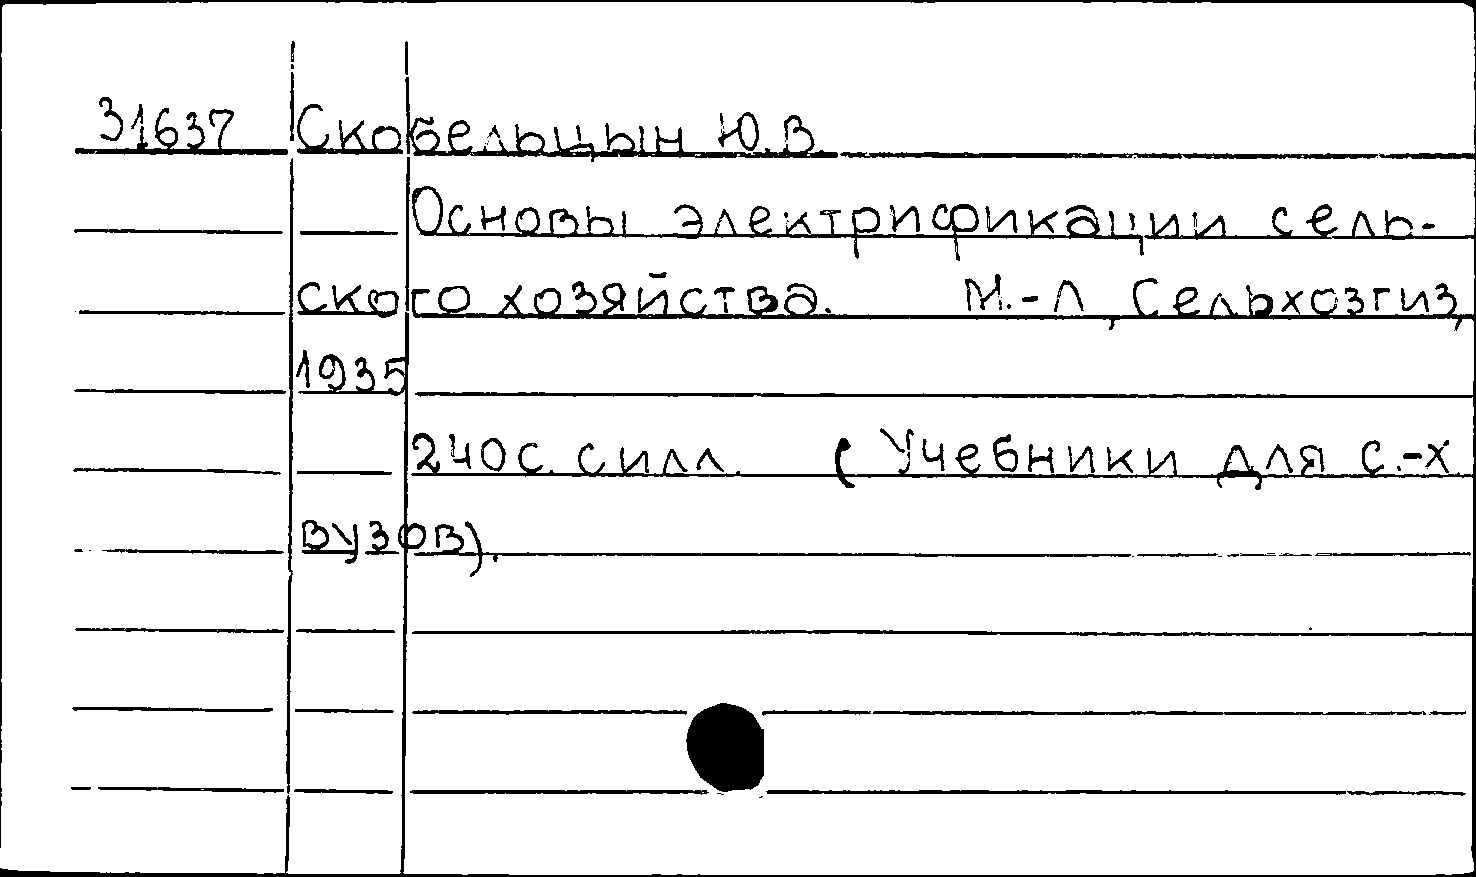 31637 Скобельцын Ю.В.
Основы электрификации сель-
ского хозяйства. М.-Л, Сельхозгиз,
1935
240с. с илл. (Учебники для с.-х.
вузов).